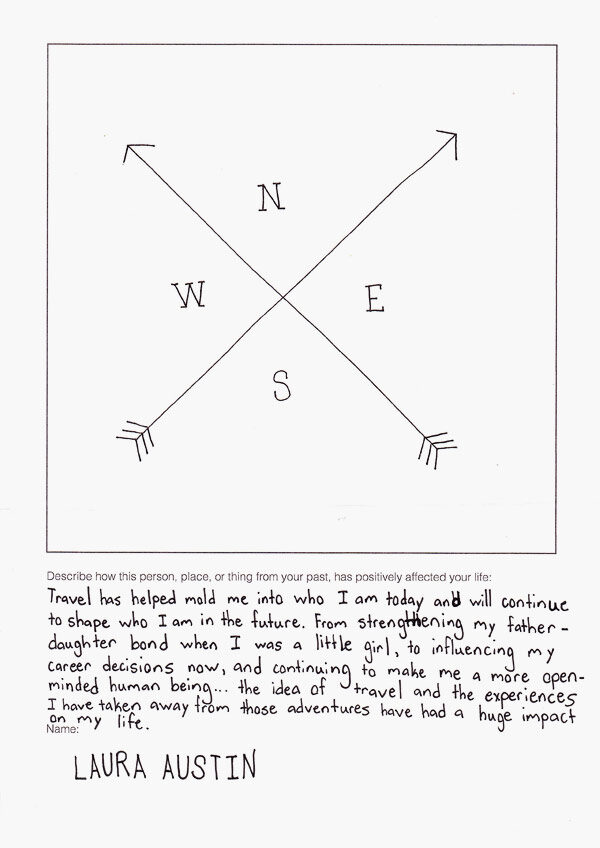 N
W E
S
Describe how this person, place, or thing from your past, has positively affected your life:
Travel has helped mold me into who I am today and will continue
to shape who I am in the future. From strengthening my father-
daughter bond when I was a little girl, to influencing my
career decisions now, and continuing to make me a more open-
minded human being... the idea of travel and the experiences
I have taken away from those adventures have had a huge impact
on my life.
Name:
LAURA AUSTIN